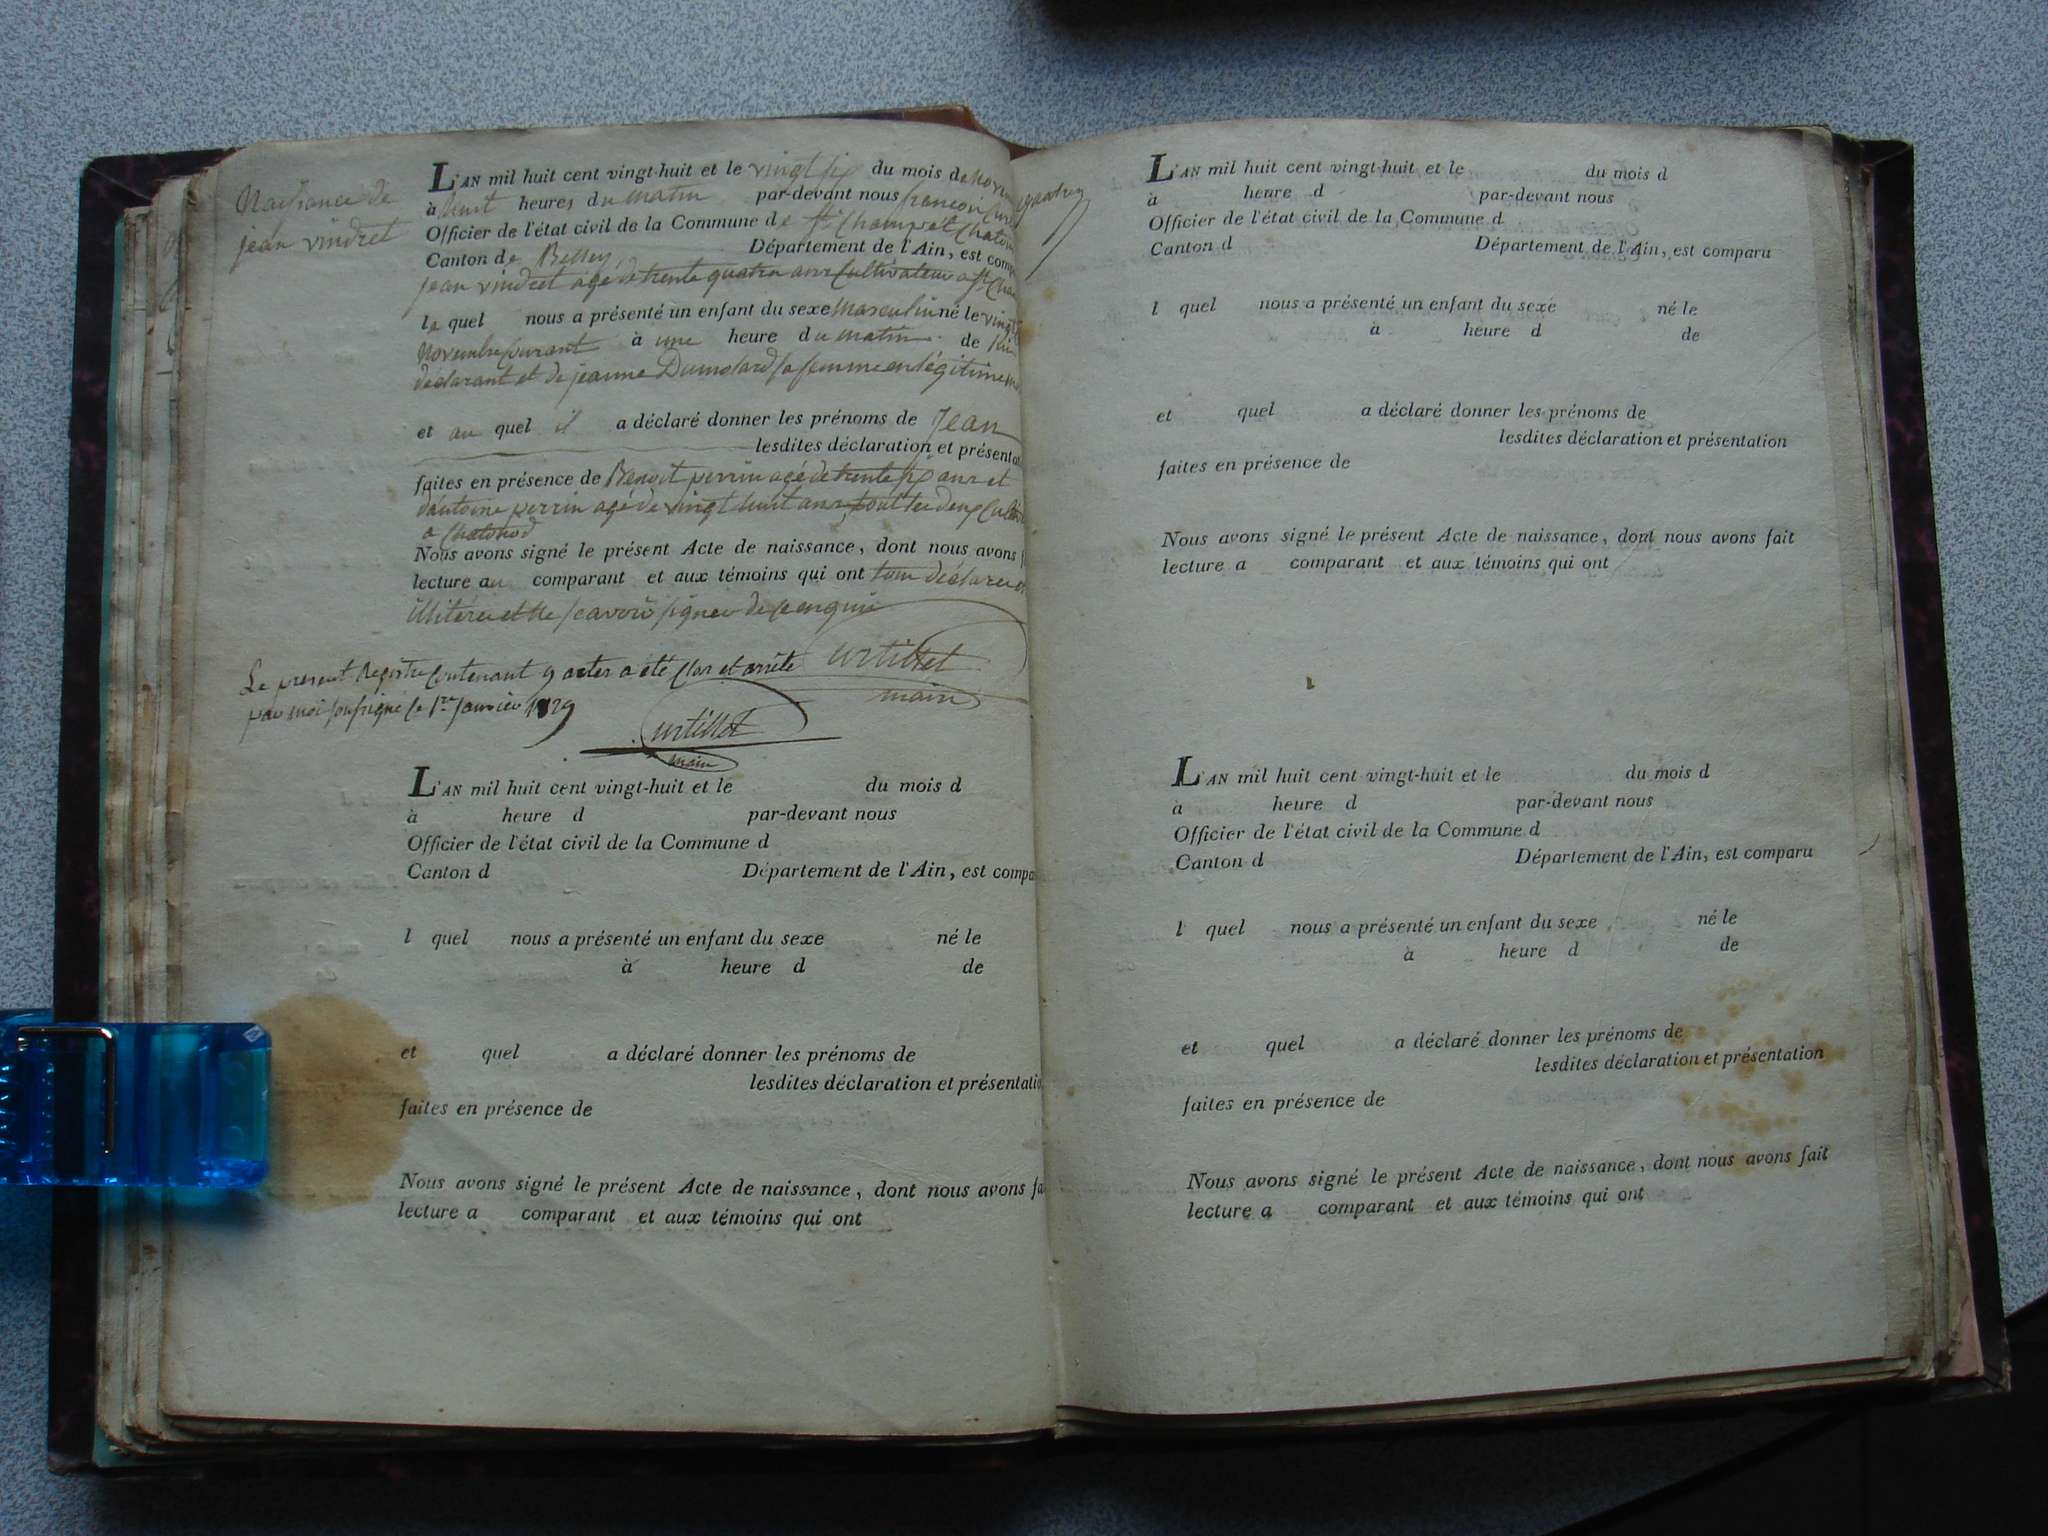 Naissance de
jean vindret
L'AN mil huit cent vingt-huit et le vingt six du mois de
à huit heures du matin par-devant nous françois
Officier de l'état civil de la Commune de St Champ et Chatonod
Canton de Belley Département de l'Ain, est comp
jean vindret agé de trente quatre ans Cultivateur a St Cha
le quel nous a présenté un enfant du sexe masculin né le vingt
Novembre Courant à une heure du matin de lui
declarant et de jeanne Dumolard sa femme en légitime
et au quel il a déclaré donner les prénoms de Jean
lesdites déclaration et présentat
faites en présence de Benoit perrin agé de trente six ans et
d'antoine perrin agé de vingt huit ans, tout les deux Cultiv
a Chatonod
Nous avons signé le présent Acte de naissance, dont nous avons f
lecture au comparant et aux témoins qui ont tous déclarer
illiteres et Ne scavoir signer de ce enquis
urtillet
main
Le present Registre Contenant 9 actes a été Clos et arrêté
par moi soussigné le 1er Janvier 1829
urtillet
main
L'AN mil huit cent vingt-huit et le du mois d
à heure d par-devant nous
Officier de l'état civil de la Commune d
Canton d Département de l'Ain, est compa
l quel nous a présenté un enfant du sexe né le
à heure d de
et quel a déclaré donner les prénoms de
lesdites déclaration et présentatio
faites en présence de
Nous avons signé le présent Acte de naissance, dont nous avons fa
lecture a comparant et aux témoins qui ont
L'AN mil huit cent vingt-huit et le du mois d
à heure d par-devant nous
Officier de l'état civil de la Commune d
Canton d Département de l'Ain, est comparu
l quel nous a présenté un enfant du sexe né le
à heure d de
et quel a déclaré donner les prénoms de
lesdites déclaration et présentation
faites en présence de
Nous avons signé le présent Acte de naissance, dont nous avons fait
lecture a comparant et aux témoins qui ont
L'AN mil huit cent vingt-huit et le du mois d
à heure d par-devant nous
Officier de l'état civil de la Commune d
Canton d Département de l'Ain, est comparu
l quel nous a présenté un enfant du sexe né le
à heure d de
et quel a déclaré donner les prénoms de
lesdites déclaration et présentation
faites en présence de
Nous avons signé le présent Acte de naissance, dont nous avons fait
lecture a comparant et aux témoins qui ont